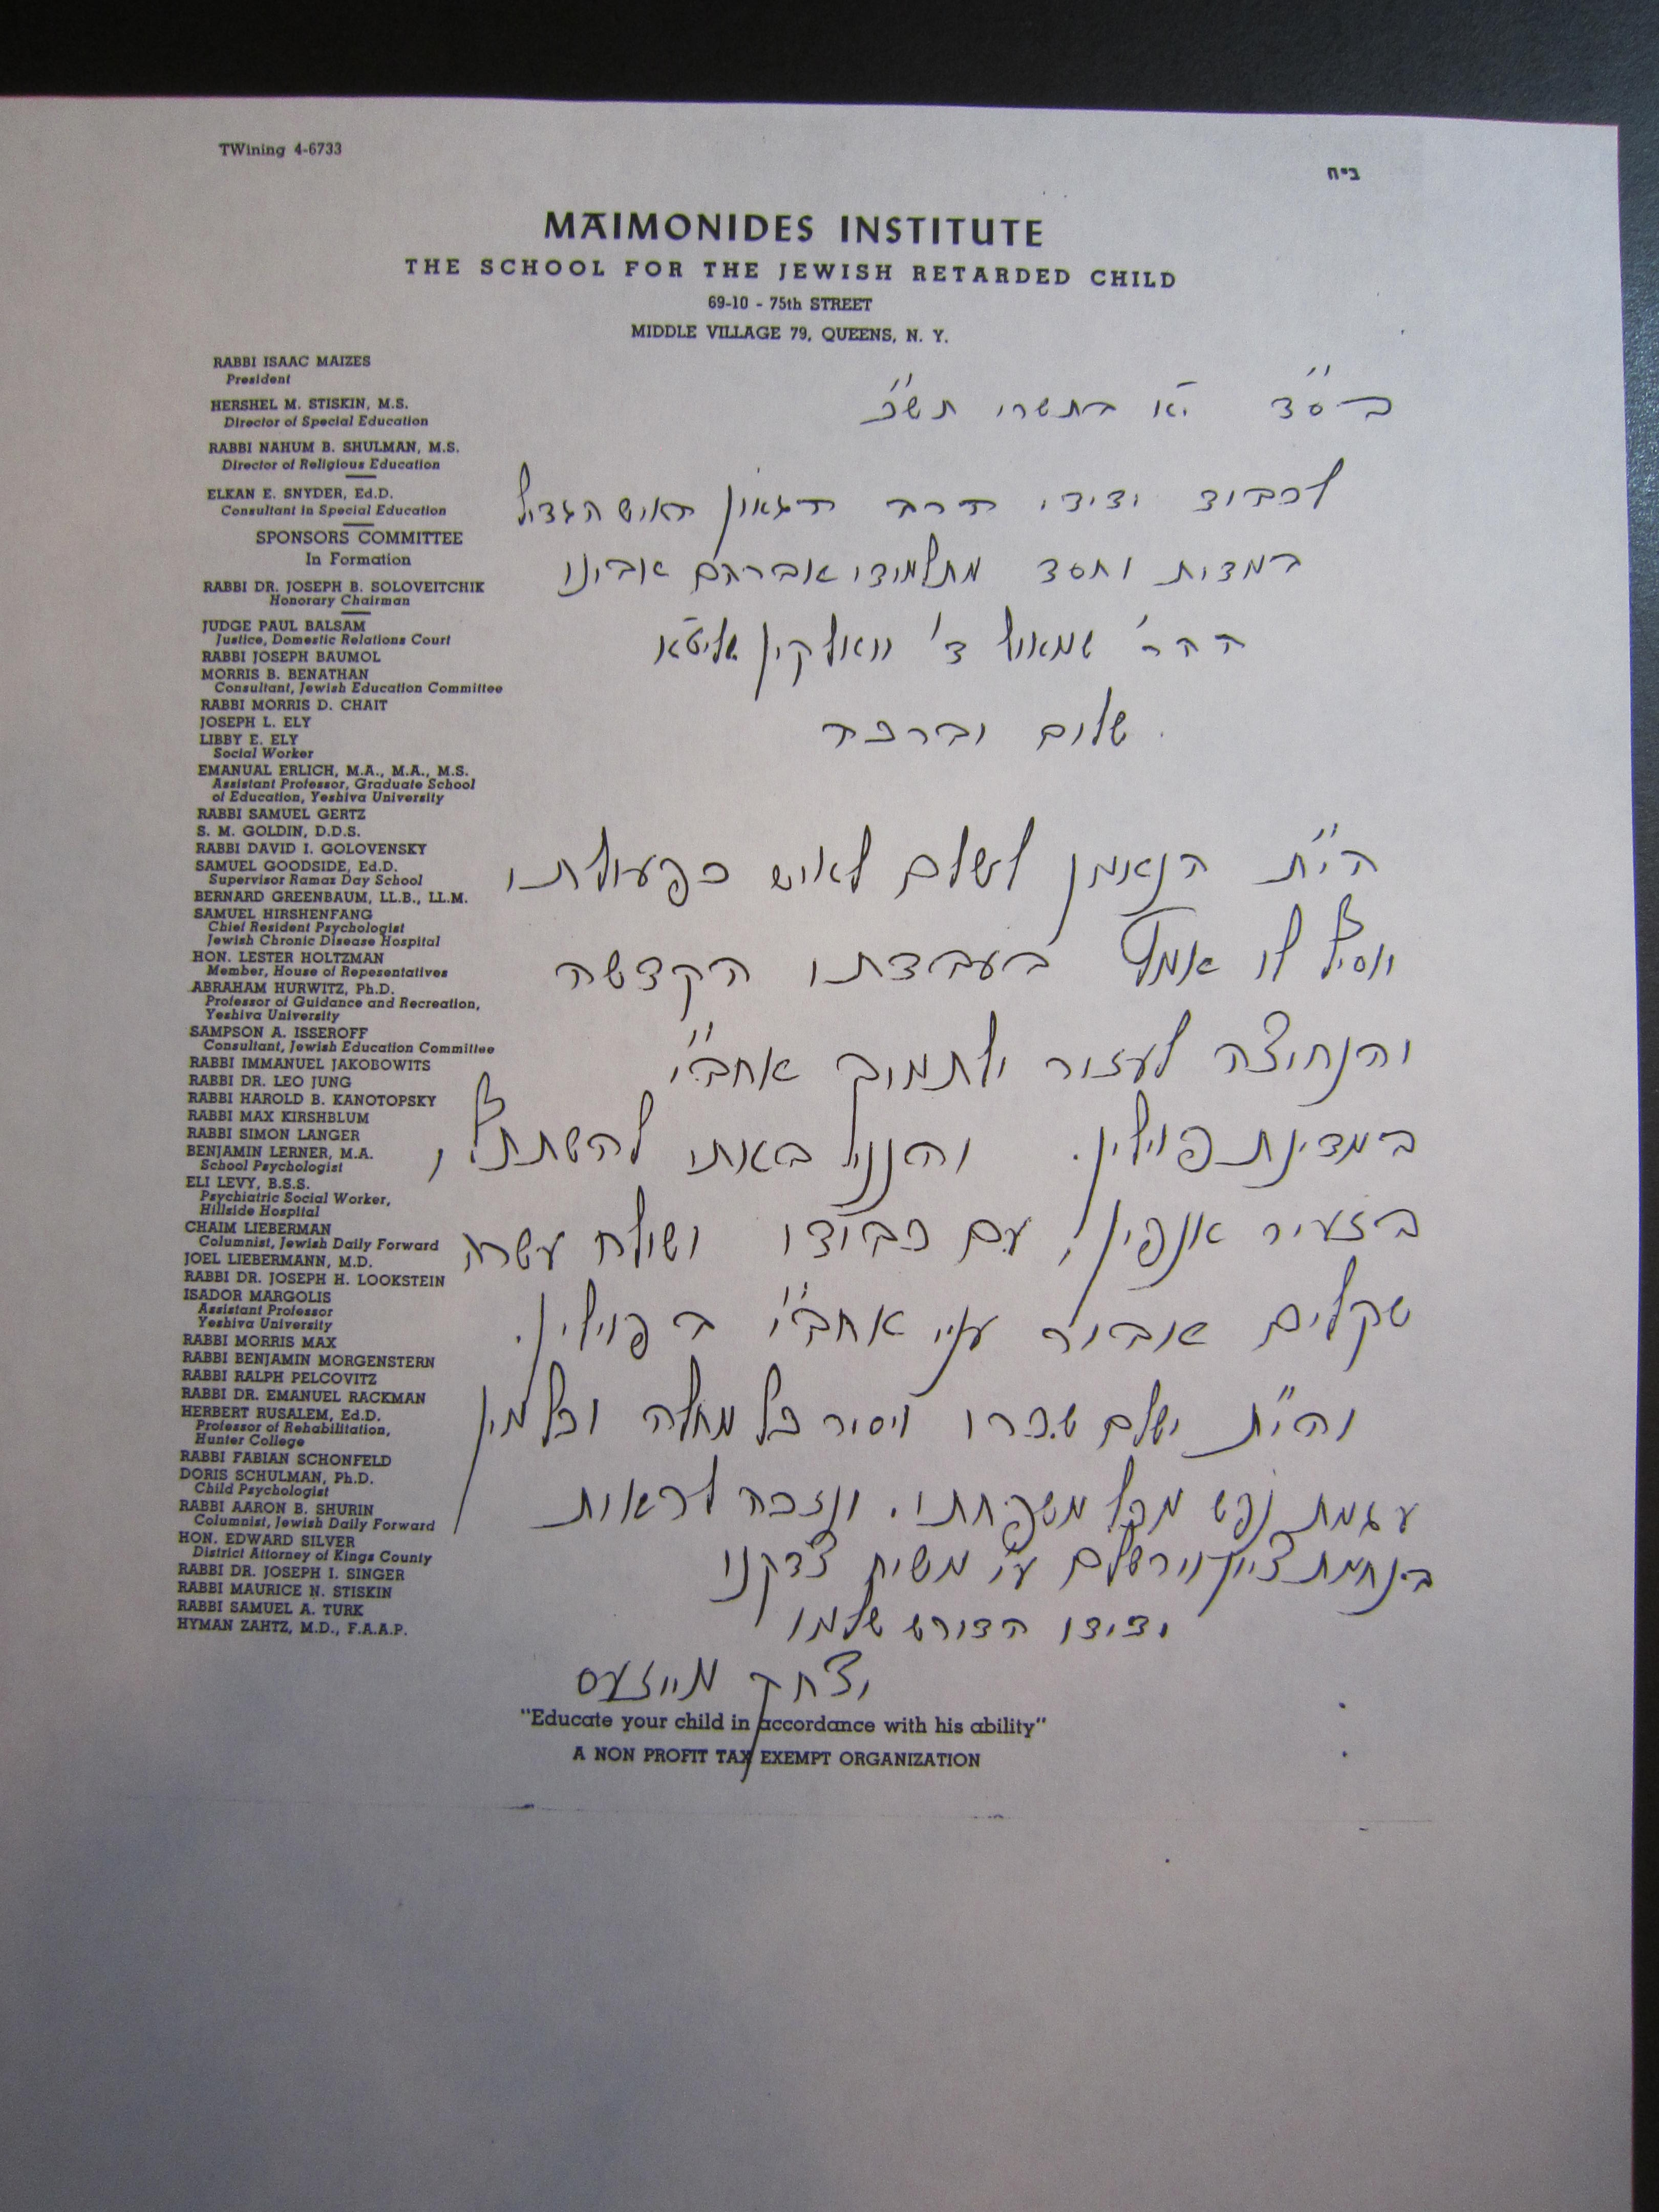 TWining 4-6733
ב״ה
MAIMONIDES INSTITUTE
THE SCHOOL FOR THE JEWISH RETARDED CHILD
69-10 - 75th STREET
MIDDLE VILLAGE 79, QUEENS, N. Y.
RABBI ISAAC MAIZES
President
HERSHEL M. STISKIN, M.S.
Director of Special Education
RABBI NAHUM B. SHULMAN, M.S.
Director of Religious Education
ELKAN E. SNYDER, Ed.D.
Consultant in Special Education
SPONSORS COMMITTEE
In Formation
RABBI DR. JOSEPH B. SOLOVEITCHIK
Honorary Chairman
JUDGE PAUL BALSAM
Justice, Domestic Relations Court
RABBI JOSEPH BAUMOL
MORRIS B. BENATHAN
Consultant, Jewish Education Committee
RABBI MORRIS D. CHAIT
JOSEPH L. ELY
LIBBY E. ELY
Social Worker
EMANUAL ERLICH, M.A., M.A., M.S.
Assistant Professor, Graduate School
of Education, Yeshiva University
RABBI SAMUEL GERTZ
S. M. GOLDIN, D.D.S.
RABBI DAVID I. GOLOVENSKY
SAMUEL GOODSIDE, Ed.D.
Supervisor Ramaz Day School
BERNARD GREENBAUM, LL.B., LL.M.
SAMUEL HIRSHENFANG
Chief Resident Psychologist
Jewish Chronic Disease Hospital
HON. LESTER HOLTZMAN
Member, House of Repesentatives
ABRAHAM HURWITZ, Ph.D.
Professor of Guidance and Recreation,
Yeshiva University
SAMPSON A. ISSEROFF
Consultant, Jewish Education Committee
RABBI IMMANUEL JAKOBOWITS
RABBI DR. LEO JUNG
RABBI HAROLD B. KANOTOPSKY
RABBI MAX KIRSHBLUM
RABBI SIMON LANGER
BENJAMIN LERNER, M.A.
School Psychologist
ELI LEVY, B.S.S.
Psychiatric Social Worker,
Hillside Hospital
CHAIM LIEBERMAN
Columnist, Jewish Daily Forward
JOEL LIEBERMANN, M.D.
RABBI DR. JOSEPH H. LOOKSTEIN
ISADOR MARGOLIS
Assistant Professor
Yeshiva University
RABBI MORRIS MAX
RABBI BENJAMIN MORGENSTERN
RABBI RALPH PELCOVITZ
RABBI DR. EMANUEL RACKMAN
HERBERT RUSALEM, Ed.D.
Professor of Rehabilitation,
Hunter College
RABBI FABIAN SCHONFELD
DORIS SCHULMAN, Ph.D.
Child Psychologist
RABBI AARON B. SHURIN
Columnist, Jewish Daily Forward
HON. EDWARD SILVER
District Attorney of Kings County
RABBI DR. JOSEPH I. SINGER
RABBI MAURICE N. STISKIN
RABBI SAMUEL A. TURK
HYMAN ZAHTZ, M.D., F.A.A.P.
ב״סד יא בתשרי תש״כ
לכבוד ידידי הרב הגאון האיש הגדול
במדות וחסד מתלמודי אברהם אבינו
ההר׳ שמאול ד׳ וואלקין שליטא
שלום וברכה
הי״ת הנאמן לשלם לאיש כפעולתו
ויוסיף לו אומץ בעבדתו הקדשה
והנחיצה לעזור ולתמוך אחב״י
במדינת פוילין. והנני באתי להשתתף,
בזעיר אנפין, עם כבודו ושולח עשרה
שקלים אבור עניי אחב״י בפוילין.
והי״ת ישלם שכרו ויסיר כל מחלה וכל מין
עגמת נפש מכל משפחתו. ונזכה לראות
בנחמת ציון וירושלם ע״י משיח צדקנו
ידידו הדורש שלמו
יצחק מייזעס
"Educate your child in accordance with his ability"
A NON PROFIT TAX EXEMPT ORGANIZATION